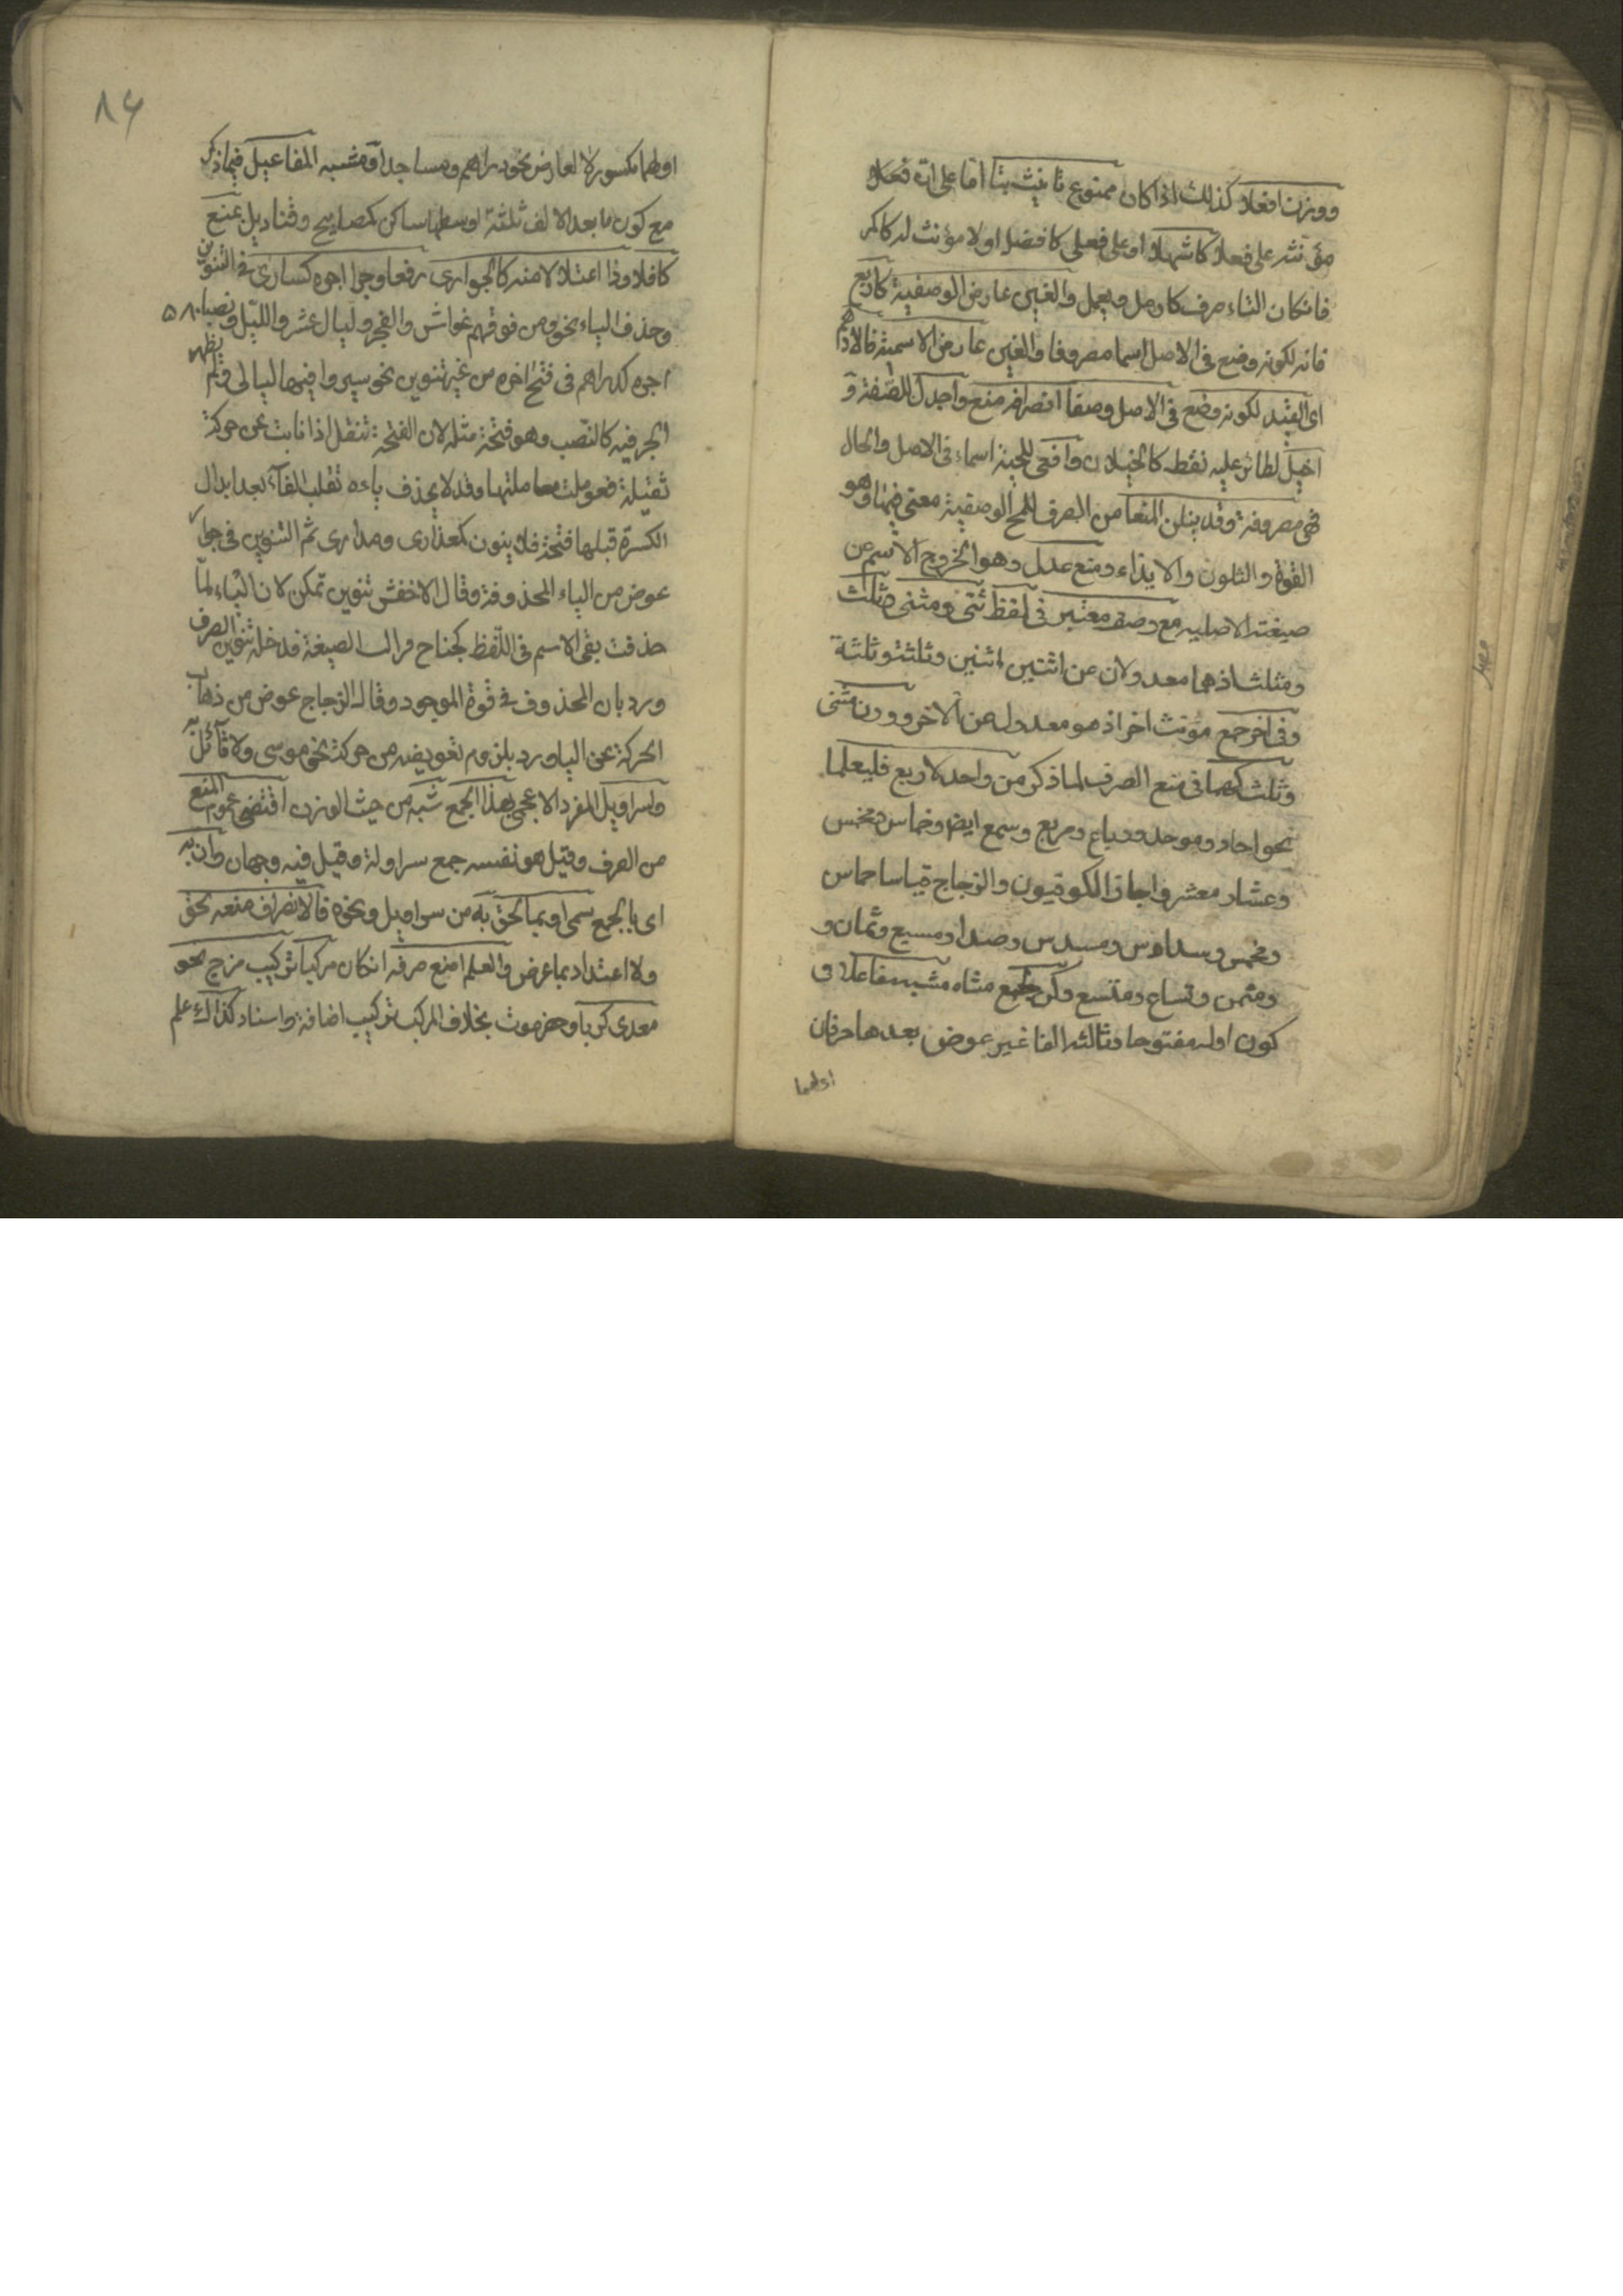 ووزن افعلا كذلك اذا كان ممنوع تانيث بتا اما على ان فعلا
مؤنثه على فعلا كاشهلا او على فعلى كافضل او لا مؤنث له كاكمر
فان كان التاء صرف كارمل ويعمل والغين عارض الوصفية كاربع
فانه لكونه وضع فى الاصل اسما مصروفا والغين عارض الاسمية فالادهم
اى القيد لكونه وضع فى الاصل وصفا انصرافه منع واجدل للصقر و
اخيل لطائر عليه نقط كالخيلان وافعى للحية اسماء فى الاصل والحال
فهى مصروفة وقد ينلن المنعا من الصرف للمح الوصفية معنى فيها وهو
القوة والتلون والايذاء ومنع عدل وهو الخروج الاسم عن
صيغته الاصليه مع وصف معتبر فى لفظ مثنى وثلث
ومثلث اذ هما معدولان عن اثنين اثنين وثلثة وثلثة
وفى اخر جمع مؤنث اخر اذ هو معدول عن الاخر ووزن مثنى
وثلث كهما فى منع الصرف لما ذكر من واحد لاربع فليعلما
نحو احاد وموحد ورباع ومربع وسمع ايض وخماس ومخمس
وعشار ومعشر واجاز الكوفيون والزجاج قياسا خماس
ومخمس وسداس ومسدس ومسبع وثمان و
ومثمن وتساع ومتسع وكن لجمع مشبه مفاعلا فى
كون اوله مفتوحا وثالثه الفا غير عوض بعدها حرفان
اولهما
٨٤
اولهما مكسور لا لعارض نحو دراهم ومساجد او مشبه المفاعيل فيما ذكر
مع كون ما بعد الالف ثلثة اوسطها ساكن كمصابيح وقناديل بمنع
كافلا وذا اعتلا لا منه كالجوارى رفعا وجرا اجره كسارى فى التنوين
وحذف الياء نحو ومن فوقهم غواش والفجر وليال عشر والليل ونصبا
اجره كدراهم فى فتح اخره من غير تنوين نحو سيروا فيها ليالى ولم يظهر
الجر فيه كالنصب وهو فتحة مثله لان الفتحة تثقل اذا نابت عن حركة
ثقيلة فعوملت معاملتها وقد لا يحذف ياءه تقلب الفا بعد ابدال
الكسرة قبلها فتحة فلا ينون كعذارى ومدارى ثم التنوين فى جوار
عوض من الياء المحذوفة وقال الاخفش تنوين تمكن لان الياء لما
حذفت بقى الاسم فى اللفظ كجناح فزالت الصيغة فدخله تنوين الصرف
ورد بان المحذوف فى قوة الموجود وقال الزجاج عوض من ذهاب
الحركة عن الياء ورد بلزوم تعويضه من حركة نحو موسى ولا قائل به
ولسراويل المفرد الاعجمى بهذا الجمع شبه من حيث الوزن اقتضى عموم المنع
من الصرف وقيل هو نفسه جمع سراولة وقيل فيه وجهان وان به
اى بالجمع سمى او بما لحق به من سراويل ونحوه فالانصراف منعه يحق
ولا اعتداد بما عرض والعلم امنع صرفه ان كان مركبا تركيب مزج نحو
معدى كربا وحضرموت بخلاف المركب تركيب اضافة واسناد كذاك علم